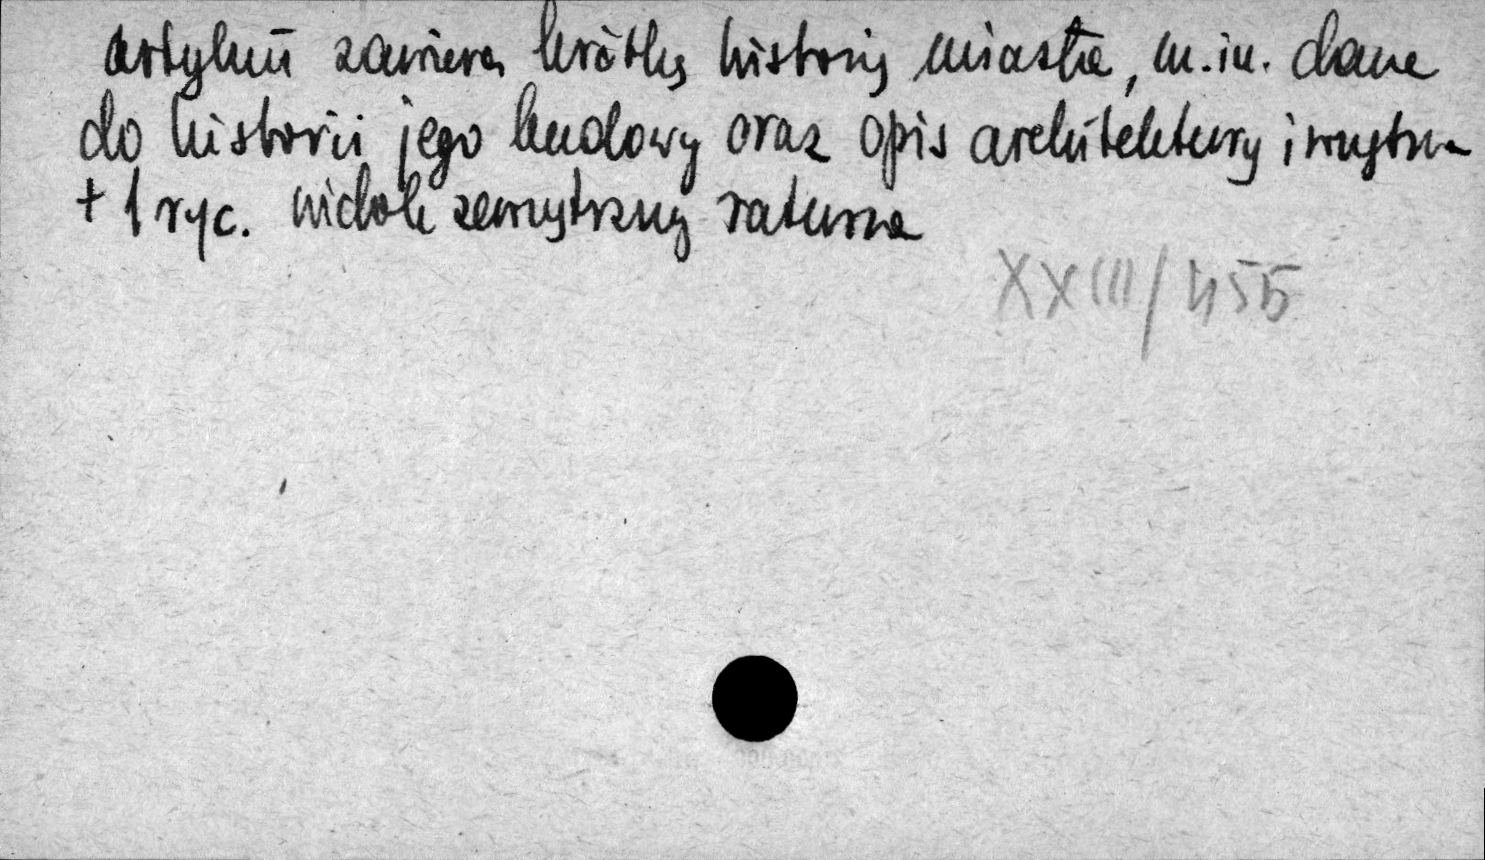 artykuł zawiera krótką historię miasta, m.in. dane
do historii jego budowy oraz opis architektury i wnętrza
+ 1 ryc. widok zewnętrzny ratusza
XXIII/455